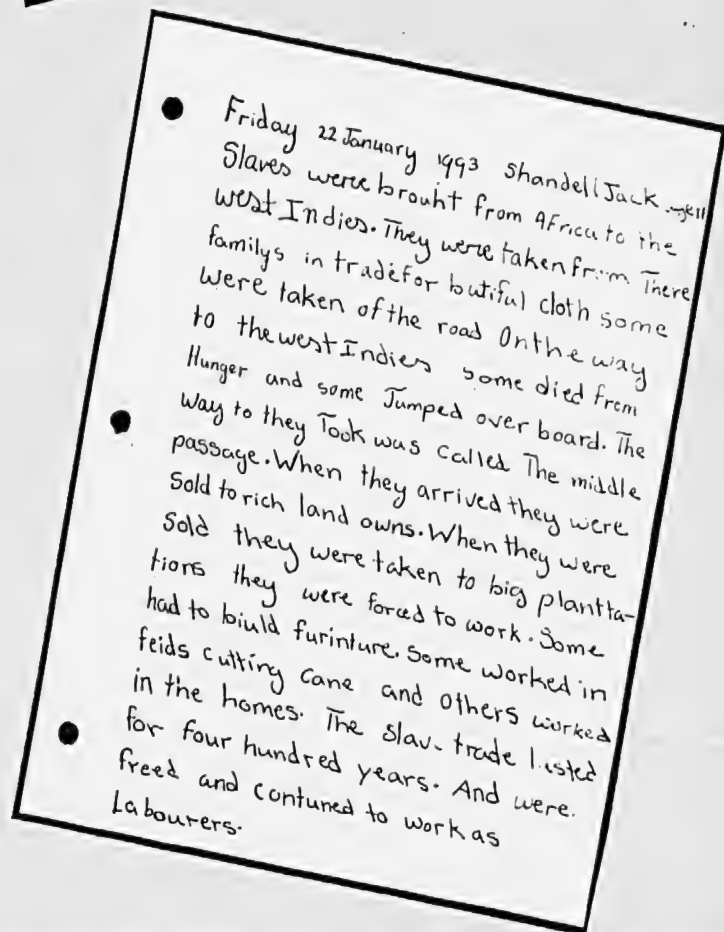 Friday 22 January 1993 Shandell Jack
Slaves were brouht from AFrica to the
west Indies. They were taken from There
familys in trade for butiful cloth some
were taken of the road On the way
to the west Indies some died from
Hunger and some Jumped over board. The
way to they Took was called The middle
passage. When they arrived they were
Sold to rich land owns. When they were
Sold they were taken to big plantta-
tions they were forced to work. Some
had to biuld furinture. Some worked in
feids cutting cane and others worked
in the homes. The Slav_ trade lasted
for four hundred years. And were.
freed and contuned to work as
Labourers.